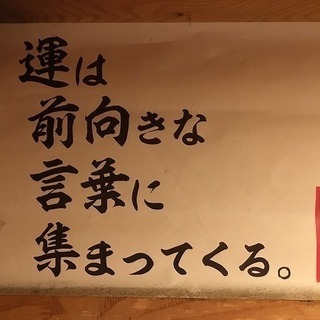 運は
前向きな
言葉に
集まってくる。